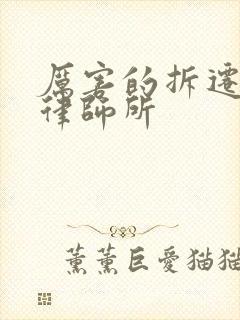 厲害的拆遷
律師所
薰薰巨愛猫猫